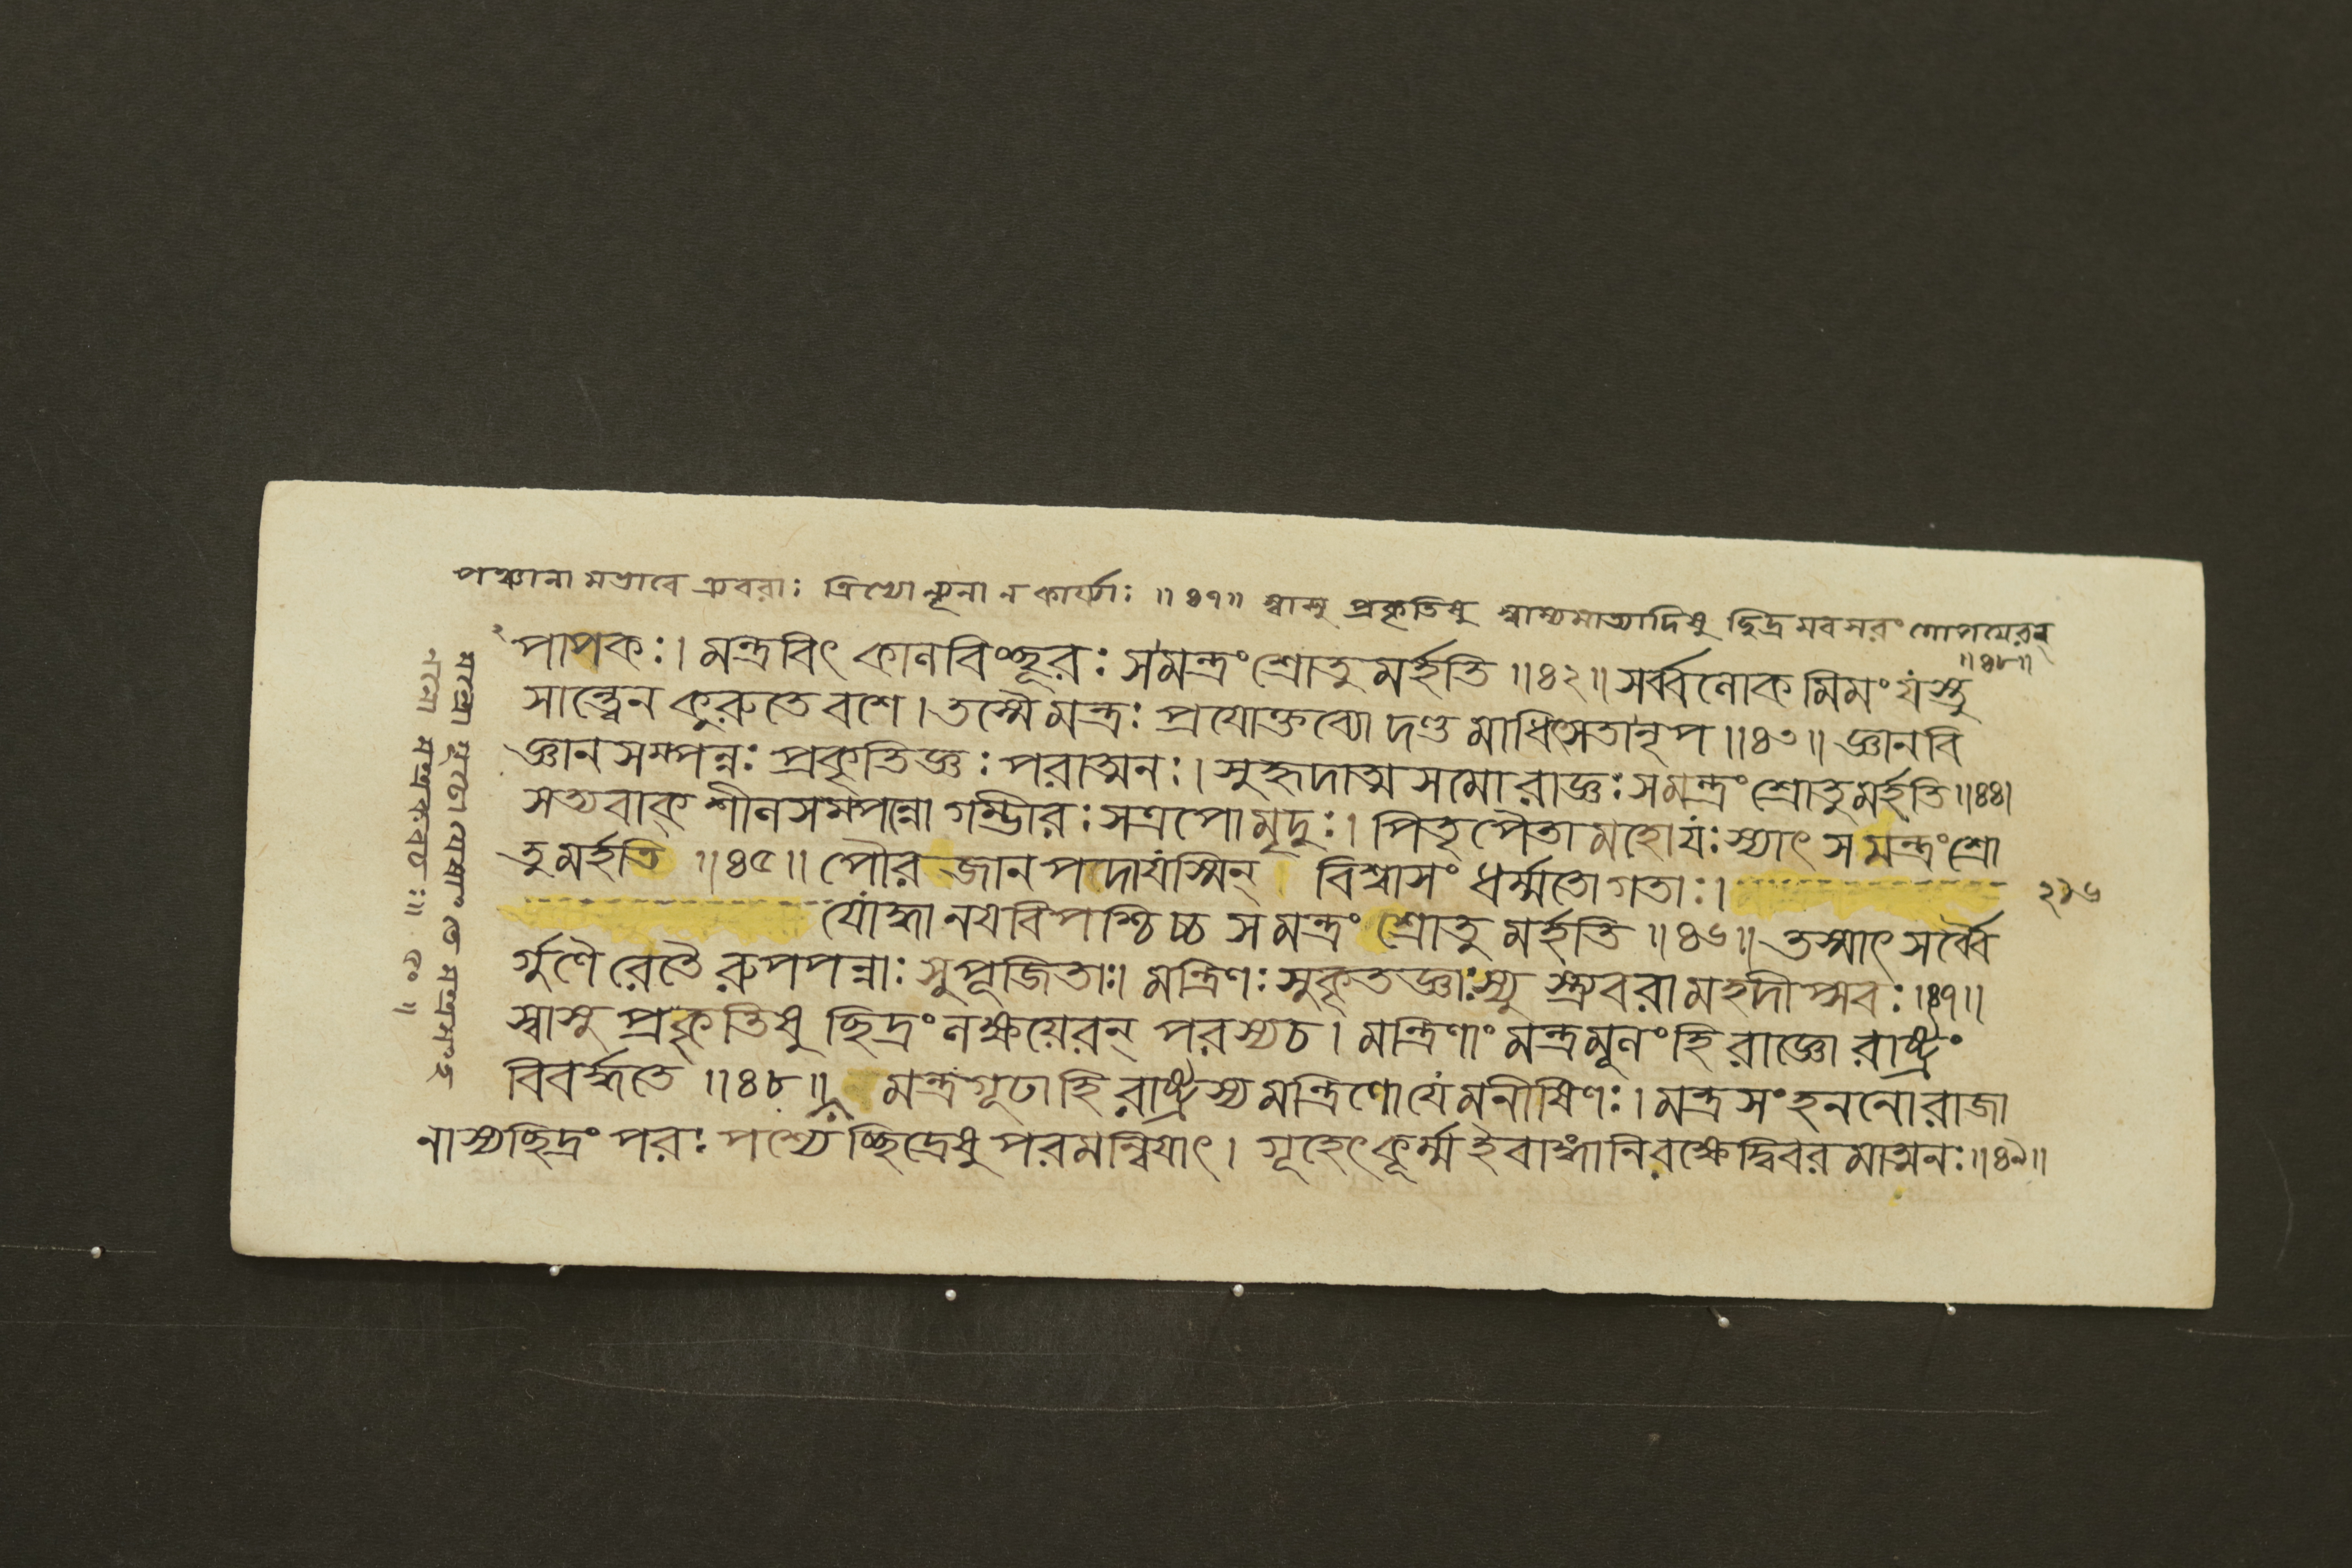 পঞ্চানামভাবে ত্র্যবরাঃ ত্রিভ্যো ন্যূনা ন কার্য্যাঃ ॥ ৪৭॥ স্বাসু প্রকৃতিষু স্বাম্যমাত্যাদিষু ছিদ্রমবসরং গোপয়েরন্
॥৪৮॥
পাপকঃ। মন্ত্রবিৎ কালবিৎশূরঃ সমন্ত্রং শ্রোতুমর্হতি ॥৪২॥ সর্ব্বলোকমিমং যস্তু
সান্ত্বেন কুরুতে বশে। তস্মৈ মন্ত্রঃ প্রযোক্তব্যো দণ্ডমাধিৎসতা নৃপ ॥৪৩॥ জ্ঞানবি
জ্ঞানসম্পন্নঃ প্রকৃতিজ্ঞঃ পরাত্মনঃ। সুহৃদাত্মসমো রাজ্ঞঃ সমন্ত্রং শ্রোতুমর্হতি ॥৪৪।
সত্যবাক্ শীলসম্পন্নো গম্ভীরঃ সত্রপো মৃদুঃ। পিতৃপৈতামহো যঃ স্যাৎ স মন্ত্রং শ্রো
তুমর্হতি ॥৪৫॥ পৌরজানপদা যস্মিন্ বিশ্বাসং ধর্ম্মতো গতাঃ। ২১৬
যোদ্ধা নয়বিপশ্চিচ্চ স মন্ত্রং শ্রোতুমর্হতি ॥৪৬॥ তস্মাৎ সর্ব্বৈ
র্গুণৈরেতৈরুপপন্নাঃ সুপূজিতাঃ। মন্ত্রিণঃ সুকৃতজ্ঞাঃ স্যুস্ত্র্যবরা মহদীপ্সবঃ ।৪৭॥
স্বাসু প্রকৃতিষু ছিদ্রং লক্ষয়েরন্ পরস্য চ। মন্ত্রিণাং মন্ত্রমূলং হি রাজ্ঞো রাষ্ট্রং
বিবর্দ্ধতে ॥৪৮॥ মন্ত্রগূঢা হি রাষ্ট্রস্য মন্ত্রিণো যে মনীষিণঃ। মন্ত্রসংহননো রাজা
নাস্য ছিদ্রং পরঃ পশ্যেচ্ছিদ্রেষু পরমন্বিয়াৎ। গূহেৎ কূর্ম্ম ইবাঙ্গানি রক্ষেদ্বিবরমাত্মনঃ ॥৪৯॥
মন্ত্রো গূঢো যেষাং তে মন্ত্রসংহ
ননো মন্ত্রকবচঃ ॥ ৫০ ॥